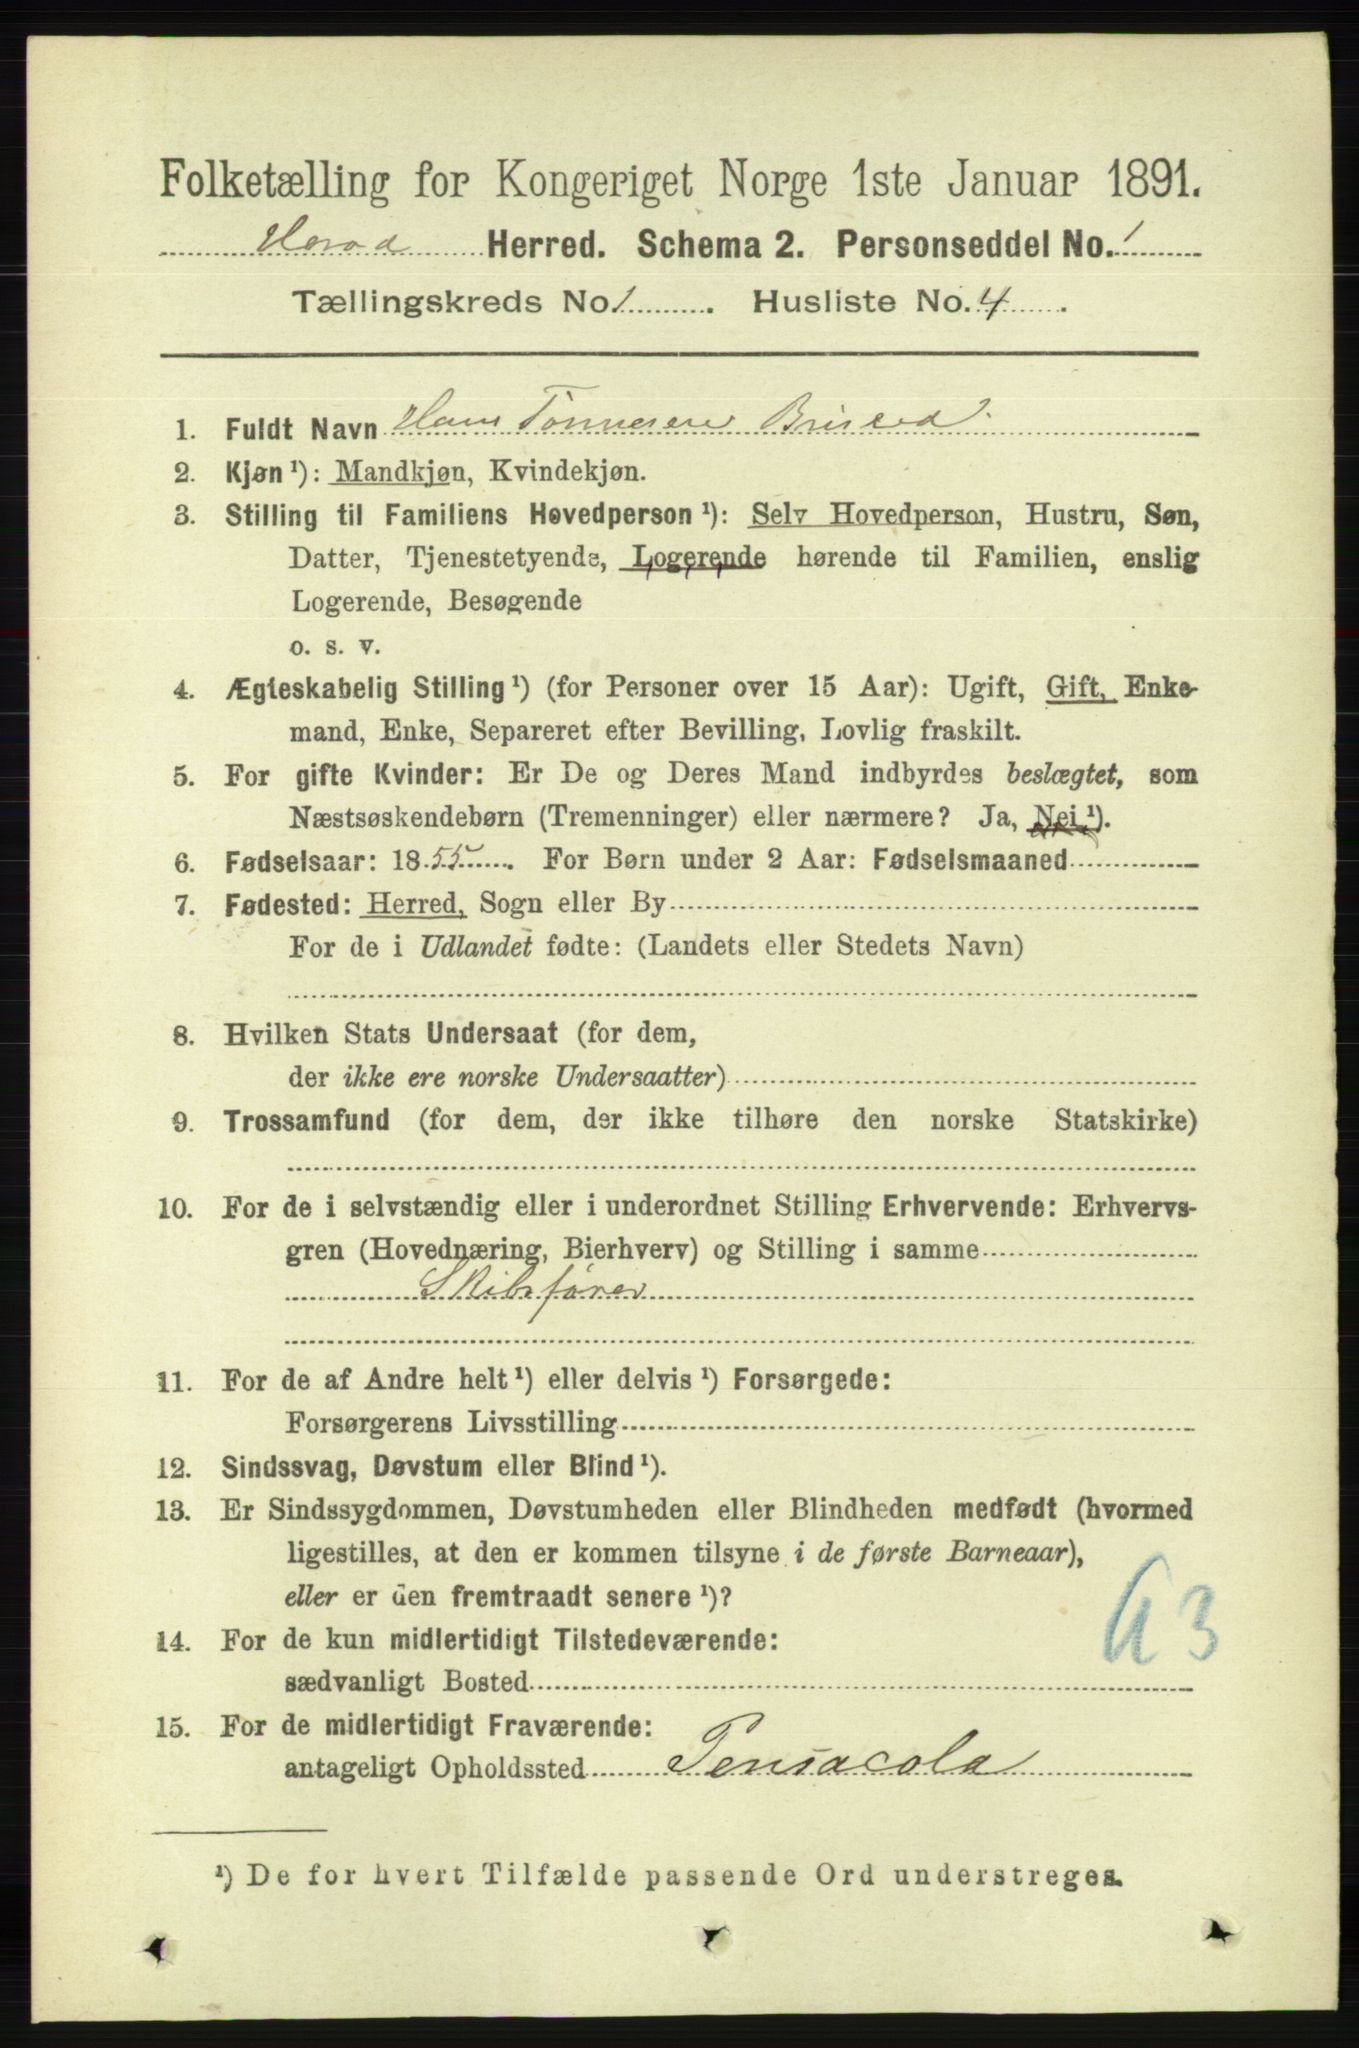 Folketælling for Kongeriget Norge 1ste Januar 1891.
Herad Herred. Schema 2. Personseddel No. 1
Tællingskreds No. 1. Husliste No. 4.
1. Fuldt Navn Hans Tønnesen Briseid
2. Kjøn ¹): Mandkjøn, Kvindekjøn.
3. Stilling til Familiens Hovedperson ¹): Selv Hovedperson, Hustru, Søn,
Datter, Tjenestetyende, Logerende hørende til Familien, enslig
Logerende, Besøgende
o. s. v.
4. Ægteskabelig Stilling ¹) (for Personer over 15 Aar): Ugift, Gift, Enke-
mand, Enke, Separeret efter Bevilling, Lovlig fraskilt.
5. For gifte Kvinder: Er De og Deres Mand indbyrdes beslægtet, som
Næstsøskendebørn (Tremenninger) eller nærmere? Ja, Nei ¹).
6. Fødselsaar: 1855. For Børn under 2 Aar: Fødselsmaaned
7. Fødested: Herred, Sogn eller By
For de i Udlandet fødte: (Landets eller Stedets Navn)
8. Hvilken Stats Undersaat (for dem,
der ikke ere norske Undersaatter)
9. Trossamfund (for dem, der ikke tilhøre den norske Statskirke)
10. For de i selvstændig eller i underordnet Stilling Erhvervende: Erhvervs-
gren (Hovednæring, Bierhverv) og Stilling i samme
Skibsfører
11. For de af Andre helt ¹) eller delvis ¹) Forsørgede:
Forsørgerens Livsstilling
12. Sindssvag, Døvstum eller Blind ¹).
13. Er Sindssygdommen, Døvstumheden eller Blindheden medfødt (hvormed
ligestilles, at den er kommen tilsyne i de første Barneaar),
eller er den fremtraadt senere ¹)?
14. For de kun midlertidigt Tilstedeværende:
sædvanligt Bosted
15. For de midlertidigt Fraværende:
antageligt Opholdssted Pensacola
¹) De for hvert Tilfælde passende Ord understreges.